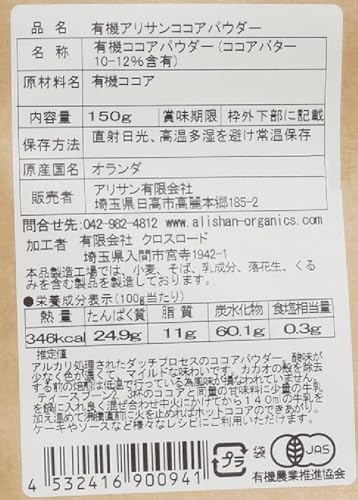 品名 有機アリサンココアパウダー
名称 有機ココアパウダー(ココアバター
10-12%含有)
原材料名 有機ココア
内容量 150g 賞味期限 枠外下部に記載
保存方法 直射日光、高温多湿を避け常温保存
原産国名 オランダ
販売者 アリサン有限会社
埼玉県日高市高麗本郷185-2
問合せ先:042-982-4812 www.alishan-organics.com
加工者 有限会社 クロスロード
埼玉県入間市宮寺1942-1
本品製造工場では、小麦、そば、乳成分、落花生、くる
みを含む製品を製造しております。
●栄養成分表示(100g当たり)
熱量 たんぱく質 脂質 炭水化物 食塩相当量
346kcal 24.9g 11g 60.1g 0.3g
推定値
アルカリ処理されたダッチプロセスのココアパウダー。酸味が
少なく色が濃くて、マイルドな味わいです。カカオの殻を除去
する前の焙煎は低温で行っている為風味が損なわれていません。
ティースプーン2、3杯のココアと同量の甘味料に少量の牛乳
を鍋に入れ良く混ぜ合わせ中火にかけてから140mlの牛乳を
加え温めて沸騰直前に火を止めればホットココアのできあがり。
ケーキやソースなど様々なレシピにご利用いただけます。
プラ 袋 JAS
有機農業推進協会
4 532416 900941